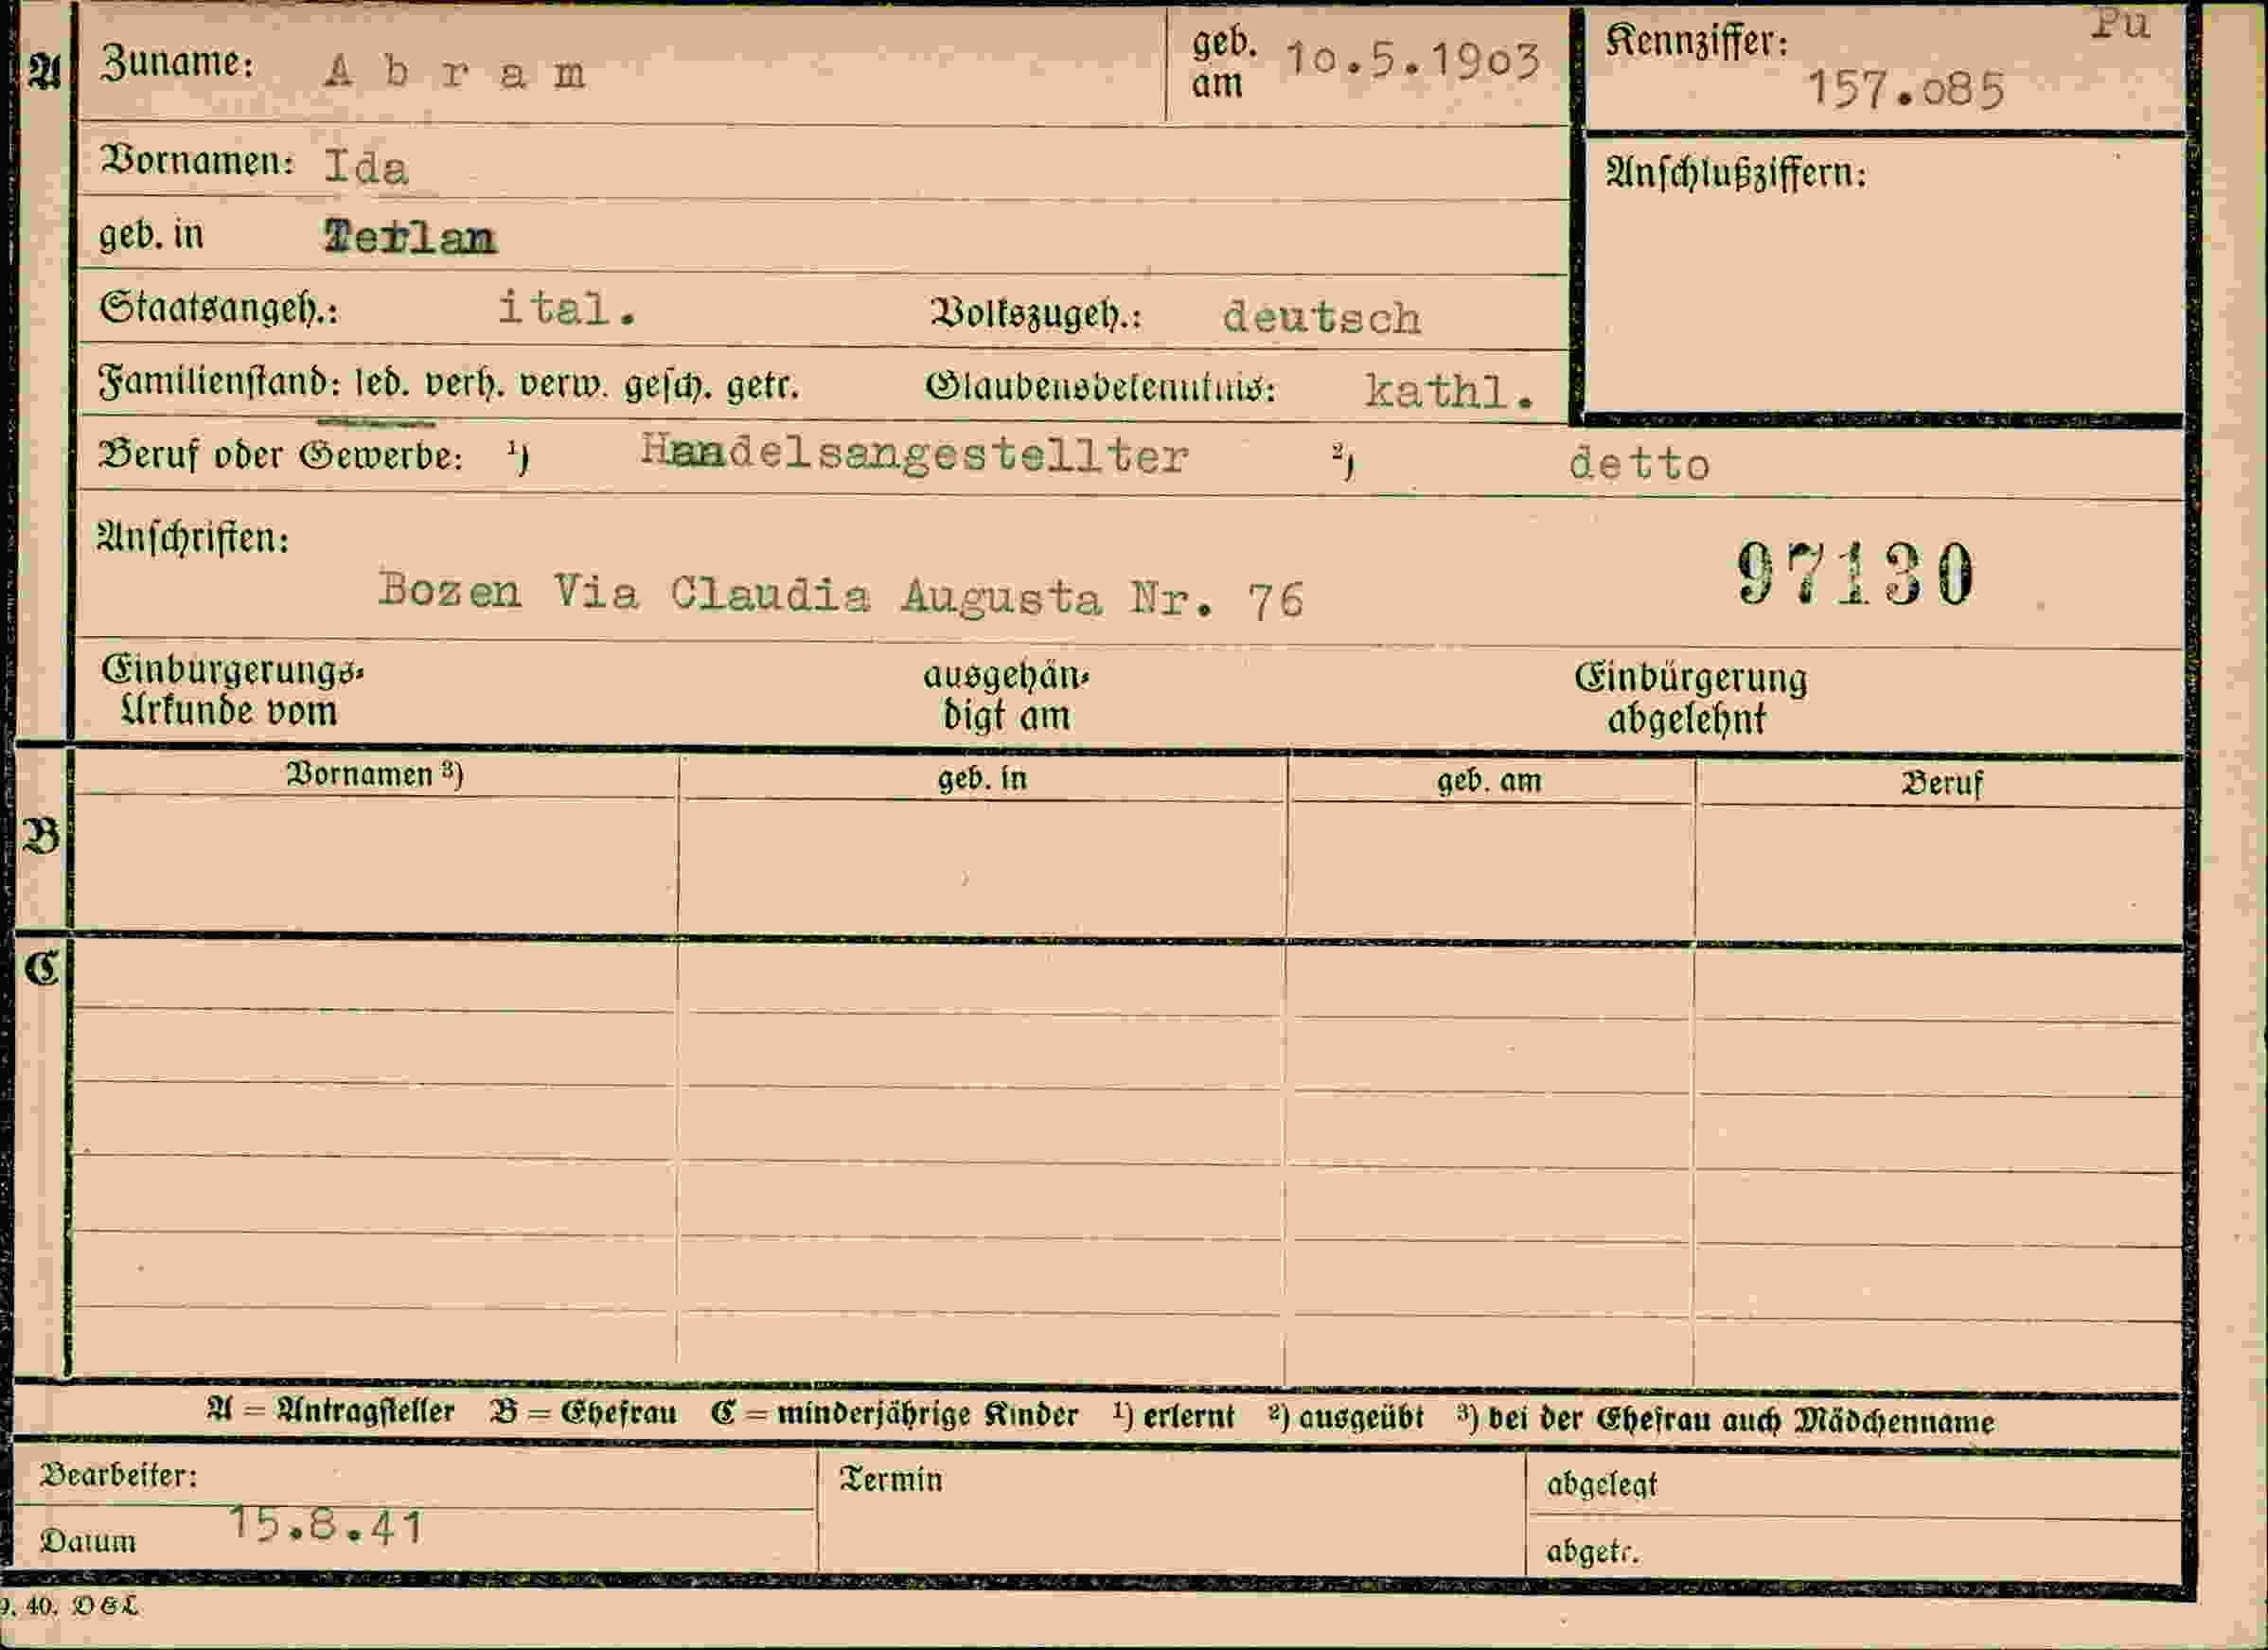 Pu
A Zuname: Abram geb. am 10.5.1903 Kennziffer: 157.085
Vornamen: Ida Anschlußziffern:
geb. in Terlan
Staatsangeh.: ital. Volkszugeh.: deutsch
Familienstand: led. verh. verw. gesch. getr. Glaubensbekenntnis: kathl.
Beruf oder Gewerbe: ¹) Handelsangestellter ²) detto
Anschriften: 97130
Bozen Via Claudia Augusta Nr. 76
Einbürgerungs- ausgehän- Einbürgerung
Urkunde vom digt am abgelehnt
Vornamen ³) geb. in geb. am Beruf
B
C
A = Antragsteller B = Ehefrau C = minderjährige Kinder ¹) erlernt ²) ausgeübt ³) bei der Ehefrau auch Mädchenname
Bearbeiter: Termin abgelegt
Datum 15.8.41 abgetr.
9. 40. D&L